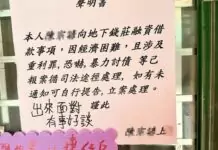 聲明書
本人陳宗諺向地下錢莊融資借
款事項，因經濟困難，且涉及
重利罪，恐赫，暴力討債 等已
報案循司法途徑處理，如有未
通知可自行提告，立案處理。
謹此
出來面對
有事好談
陳宗諺上